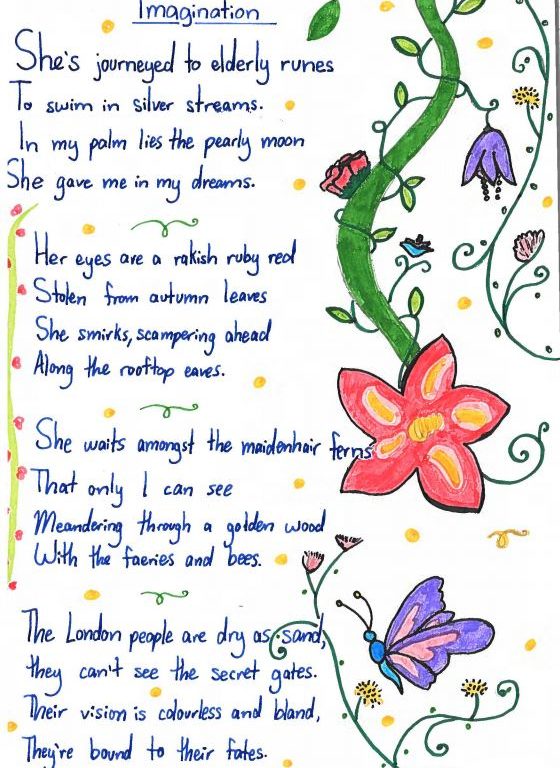 Imagination
She's journeyed to elderly runes
To swim in silver streams.
In my palm lies the pearly moon
She gave me in my dreams.
Her eyes are a rakish ruby red
Stolen from autumn leaves
She smirks, scampering ahead
Along the rooftop eaves.
She waits amongst the maidenhair ferns
That only I can see
Meandering through a golden wood
With the faeries and bees.
The London people are dry as sand,
they can't see the secret gates.
Their vision is colourless and bland,
They're bound to their fates.